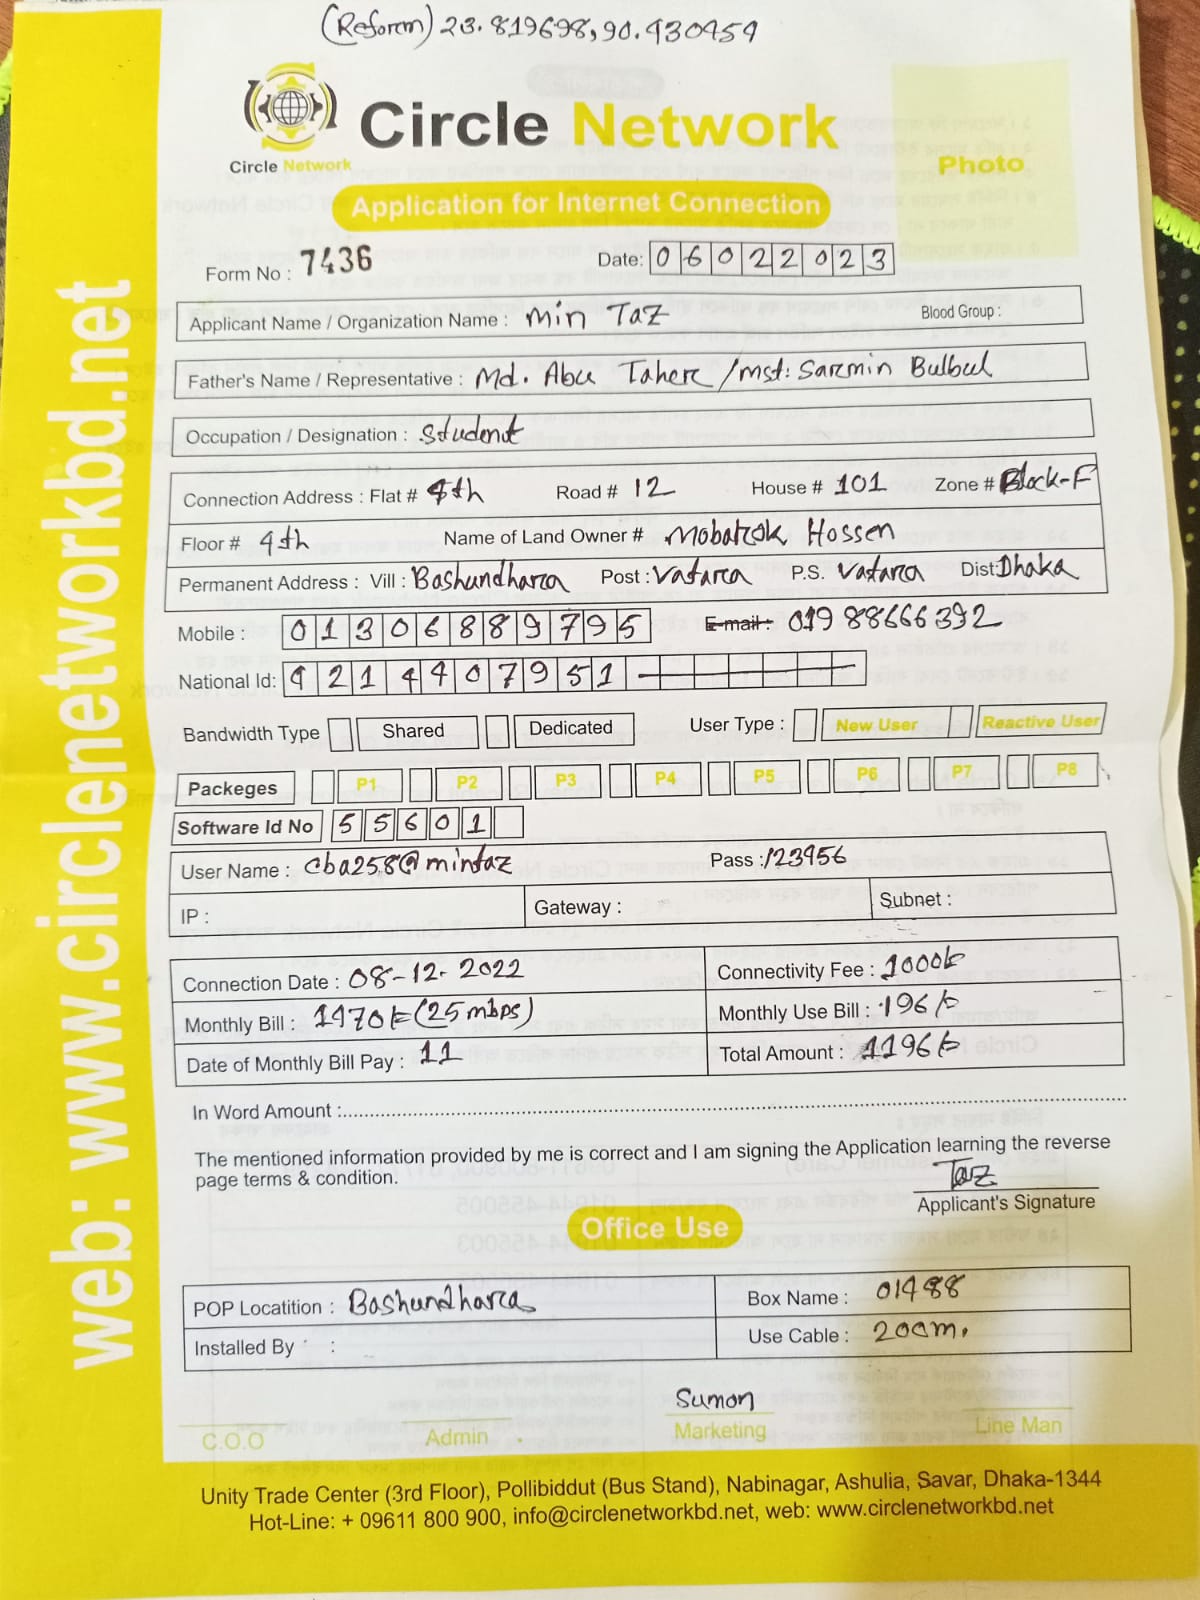 (Reform) 23.819698,90.430454
Circle Network
Circle Network
Photo
Application for Internet Connection
Form No : 7436
Date: 06022023
Applicant Name / Organization Name : Min Taz Blood Group :
Father's Name / Representative : Md. Abu Taher /mst: Sarmin Bulbul
Occupation / Designation : Student
Connection Address : Flat # 4th Road # 12 House # 101 Zone # Block-F
Floor # 4th Name of Land Owner # Mobarok Hossen
Permanent Address : Vill : Bashundhara Post : Vatara P.S. Vatara Dist: Dhaka
Mobile : 01306889795 E-mail : 01988666392
National Id: 4214407951
Bandwidth Type Shared Dedicated User Type : New User Reactive User
Packeges P1 P2 P3 P4 P5 P6 P7 P8
Software Id No 55601
User Name : cba258@mintaz Pass : 123456
IP : Gateway : Subnet :
Connection Date : 08-12-2022 Connectivity Fee : 1000/-
Monthly Bill : 1470/- (25 mbps) Monthly Use Bill : 196/-
Date of Monthly Bill Pay : 11 Total Amount : 1196/-
In Word Amount :
The mentioned information provided by me is correct and I am signing the Application learning the reverse
page terms & condition.
Taz
Applicant's Signature
Office Use
POP Locatition : Bashundhara Box Name : 01488
Installed By : Use Cable : 200m.
Sumon
C.O.O Admin Marketing Line Man
Unity Trade Center (3rd Floor), Pollibiddut (Bus Stand), Nabinagar, Ashulia, Savar, Dhaka-1344
Hot-Line: + 09611 800 900, info@circlenetworkbd.net, web: www.circlenetworkbd.net
web: www.circlenetworkbd.net